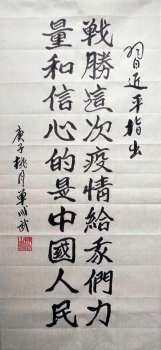 習近平指出
戰勝這次疫情給我們力
量和信心的是中國人民
庚子桃月單成武